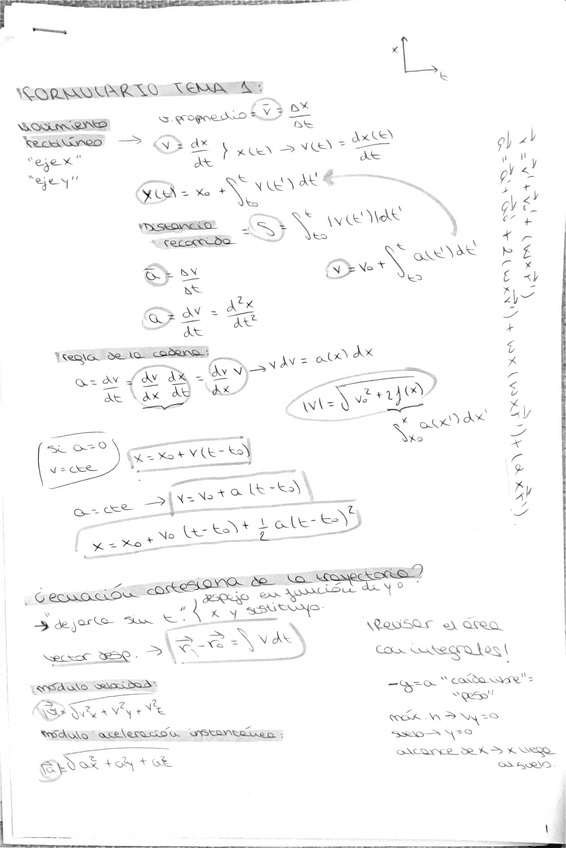 x
t
FORMULARIO TEMA 1:
Movimiento rectilíneo →
"eje x"
"eje y"
v. promedio = v̄ = Δx/Δt
v = dx/dt } x(t) → v(t) = dx(t)/dt
x(t) = x₀ + ∫_{t₀}^{t} v(t') dt'
Distancia recorrida = S = ∫_{t₀}^{t} |v(t')| dt'
v = v₀ + ∫_{t₀}^{t} a(t') dt'
ā = Δv/Δt
a = dv/dt = d²x/dt²
regla de la cadena:
a = dv/dt = dv/dx dx/dt = dv/dx v → v dv = a(x) dx
|v| = √(v₀² + 2f(x))
∫_{x₀}^{x} a(x') dx'
si a=0
v=cte
x = x₀ + v(t-t₀)
a=cte → v = v₀ + a (t-t₀)
x = x₀ + v₀ (t-t₀) + ½ a(t-t₀)²
¿ecuación cartesiana de la trayectoria?
→ "dejarla sin t". { despejo en función de y o
x y sustituyo.
vector desp. → r⃗₁ - r⃗₀ = ∫ v dt
módulo velocidad:
|v⃗| = √v²x + v²y + v²z
módulo aceleración instantánea:
|a⃗| = √a²x + a²y + a²z
¡Revisar el área
con integrales!
-g = a "caída libre" =
"peso"
máx. h → vy=0
suelo → y=0
alcance de x → x llega
al suelo.
v⃗ = v⃗' + v⃗₀' + (ω×r⃗')
a⃗ = a⃗' + a⃗₀' + 2(ω×v⃗') + ω×(ω×r⃗') + (α×r⃗').
1